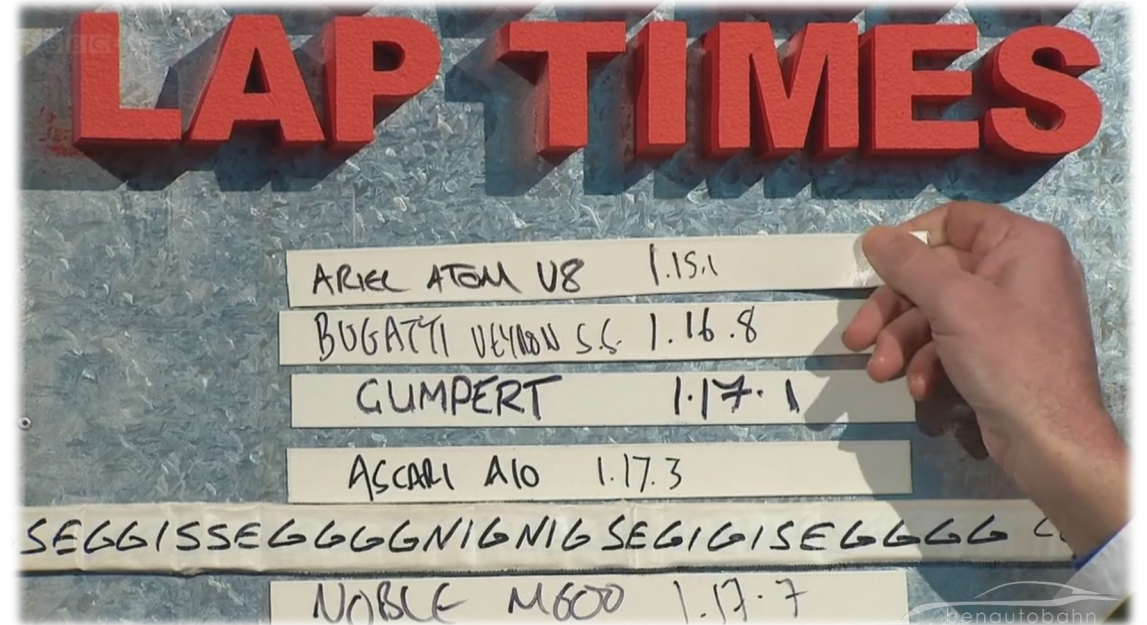 LAP TIMES
ARIEL ATOM V8 1.15.1
BUGATTI VEYRON S.S. 1.16.8
GUMPERT 1.17.1
ASCARI A10 1.17.3
SEGGISSEGGGGNIGNIGSEGIGISEGGGG
NOBLE M600 1.17.7
benautobahn